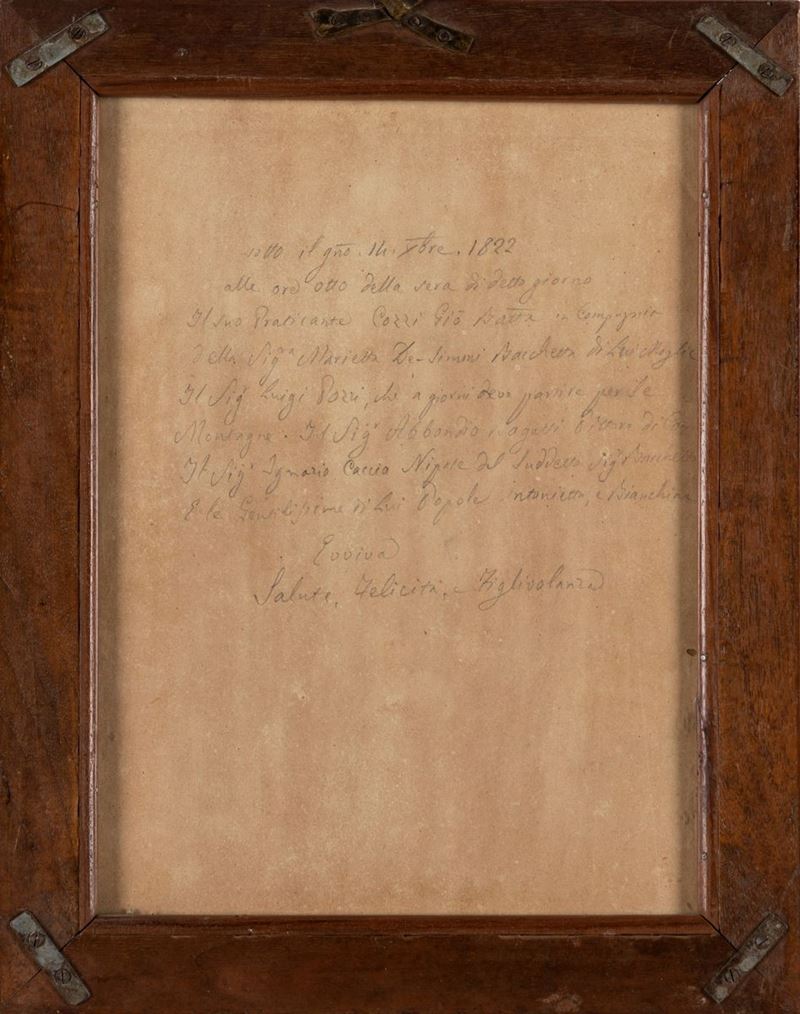 il gno. 14. Xbre. 1822
alle ore otto della sera di detto giorno
Il suo Praticante Cozzi Gio Batta in Compagnia
della Sigra Marietta De-Simmi Bacchetta di Lui Moglie
Il Sigr Luigi Pozzi, che a giorni deve partire per le
Montagne. Il Sigr Abbondio Pittore di
Il Sigr Ignazio Caccia Nipote del Suddetto Sigr
E le Gentilissime di Lui Popole Antonietta, e Bianchina
Evviva
Salute, Felicità, e Figlivolanza